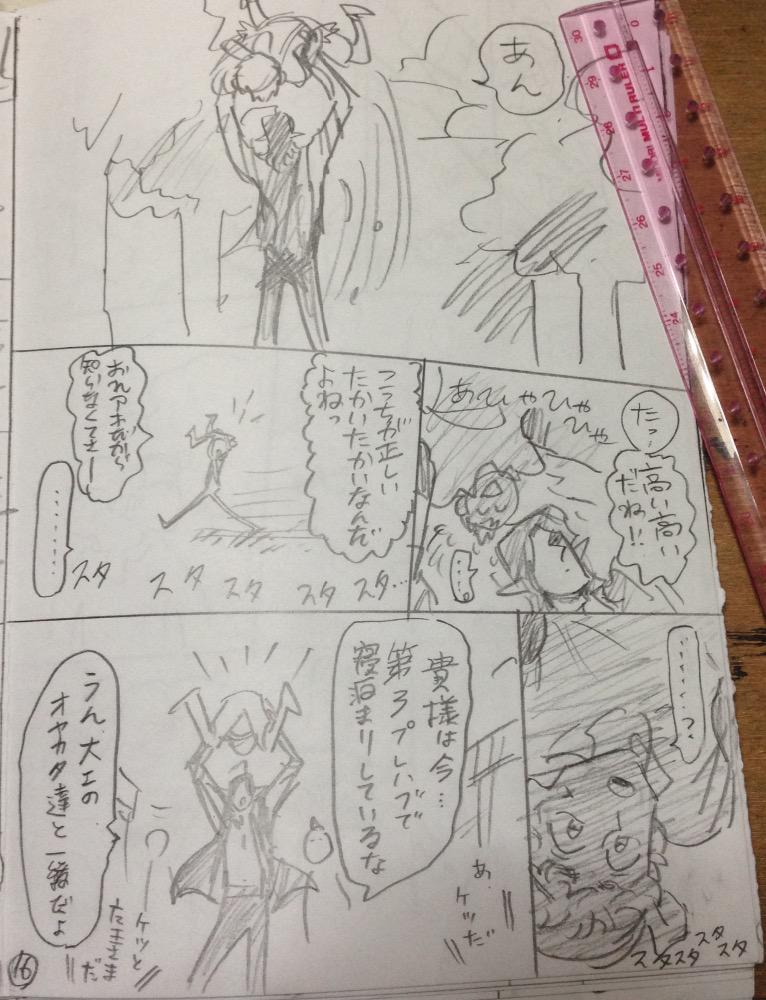 あん
たっ…
高い高い
だね!!
あひゃひゃ
ひゃ
……
こっちが正しい
たかいたかいなんだ
よねっ
おれアホだから
知らなくてさー
………
スタ スタ スタ スタ スタ…
………っ
スタ スタ スタ スタ
貴様は今…
第3プレハブで
寝泊まりしているな
あ、
ケツだ
うん、大工の
オヤカタ達と一緒だよ
ケツと
たまさま
だ
16
MULTI RULER
0
1
30
29
28
27
26
25
24